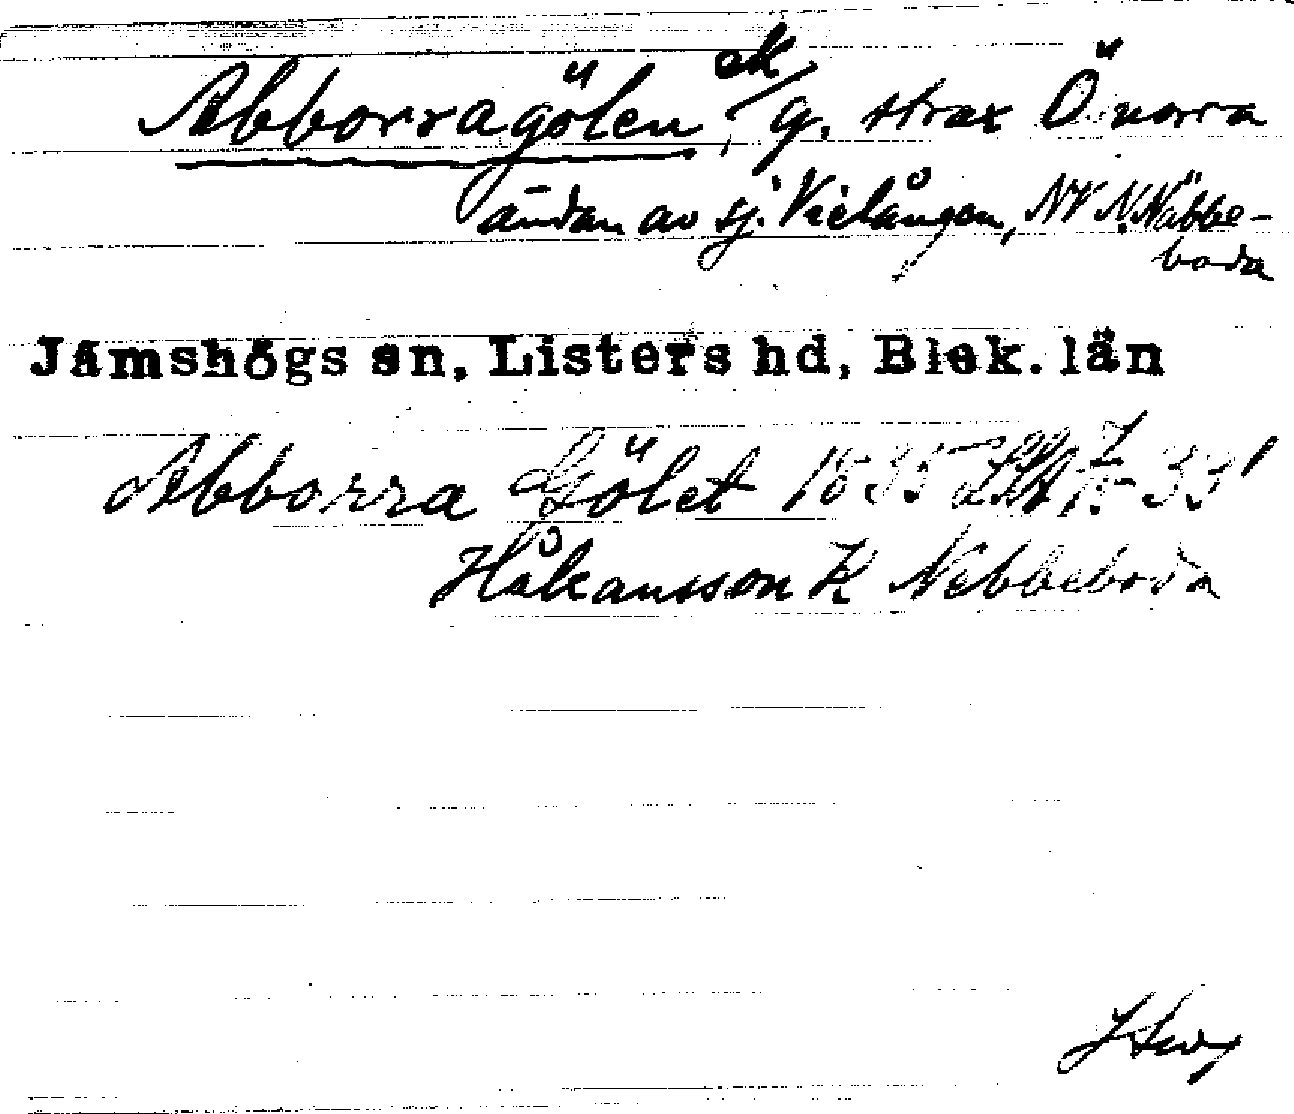 Abborragölen, ek / g. strax Ö norra
ändan av sj. Vielången, NV N. Näbbe-
boda
Jämshögs sn, Listers hd, Blek. län
Abborra Gölet 1835 33
Håkansson K Nebbeboda